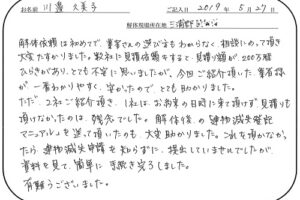 お名前 川邉 久美子 ご記入日 2019年 5月 27日
解体現場所在地 三浦郡葉山町
解体依頼は初めてで、業者さんの選び方もわからなく 相談にのって頂き
大変たすかりました。数社に見積依頼をすると、見積り額が、200万程
ひらきがあり、とても不安に思いましたが、今回ご紹介頂いた、業者様
が一番わかりやすく、安かったので とても助かりました。
ただ、2社ご紹介頂き、1社は、お約束の日時に来て頂けず 見積りも
頂けなかったのは、残念でした。解体後の建物滅失登記
マニュアルを送って頂いたのも、大変助かりました。これを頂かなか
ったら 建物滅失申請を知らずに、提出していませんでしたが、
資料を見て、簡単に手続き完了しました。
有難うございました。